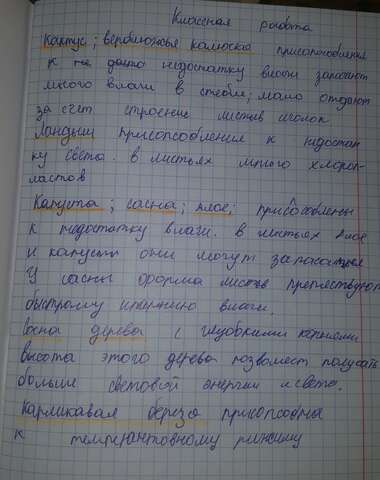 Классная работа
Кактус; верблюжья колючка приспособления
к недостатку влаги запасают
много влаги в стебли; мало отдают
за счет строение листьев иголок
Ландыш приспособление к недостат
ку света. в листьях много хлороп-
ластов
Капуста; сосна; алое; приспособлены
к недостатку влаги. в листьях Алое
и капусты они могут запасатся
У сосны форма листьев препятствуют
быстрому влаги.
Сосна дерева с глубокими корнями
высота этого дерева позволяет получать
больше световой энергии и света.
Карликовая береза приспособлна
к режиму